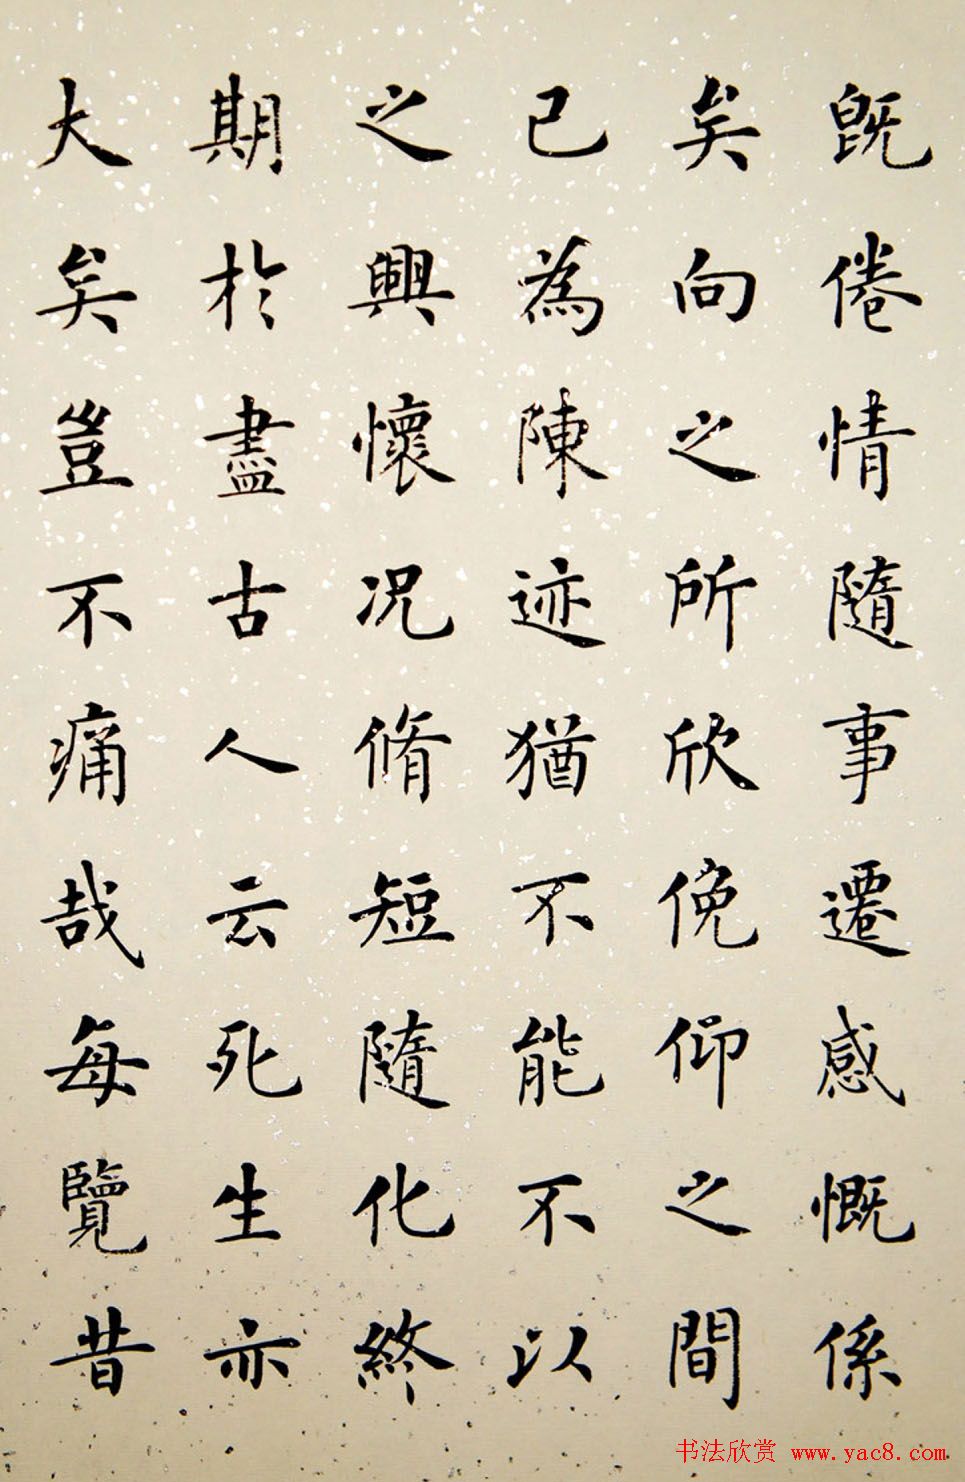 既倦情隨事遷感慨係
矣向之所欣俛仰之間
已為陳迹猶不能不以
之興懷况脩短隨化終
期於盡古人云死生亦
大矣豈不痛哉每覽昔
书法欣赏 www.yac8.com